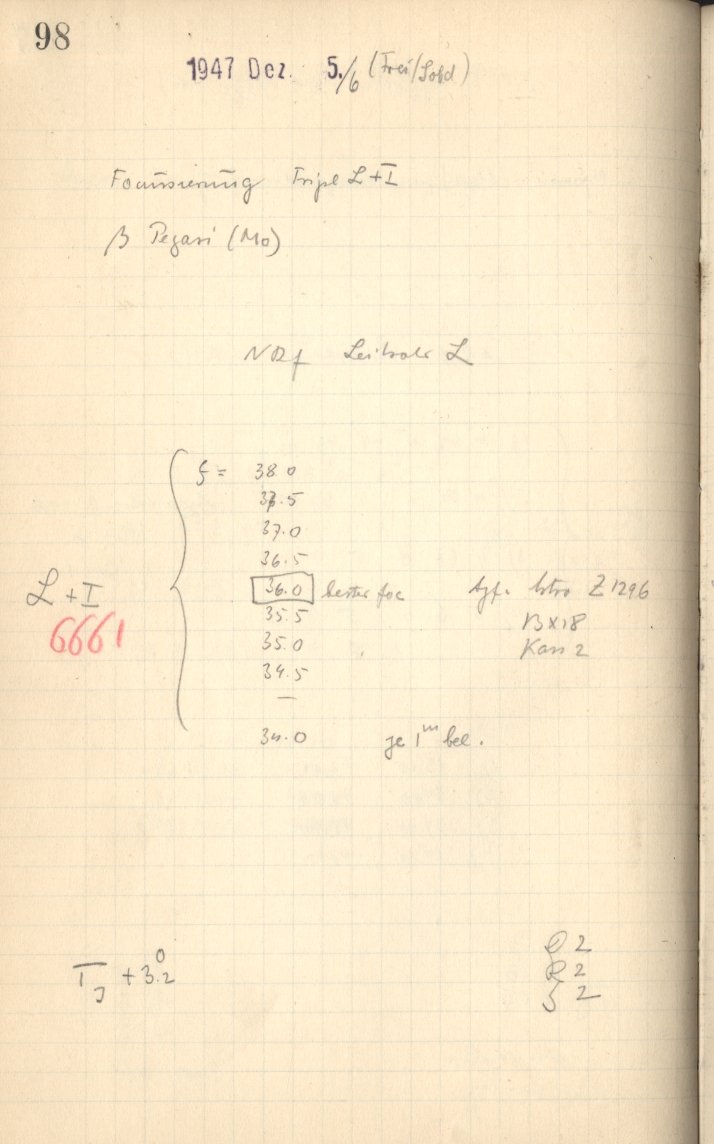 98
1947 Dez. 5./6 (Frei/Sobd)
Focussierung Tripl L+I
β Pegasi (M0)
NRf Leitrohr L
ζ = 38.0
37.5
37.0
36.5
36.0 bester foc Agf. Astro Z 1296
L+I
35.5 BX18
6661
35.0 Kass 2
34.5
—
34.0 je 1ᵐ bel.
D 2
R 2
T_J +3.2⁰
S 2